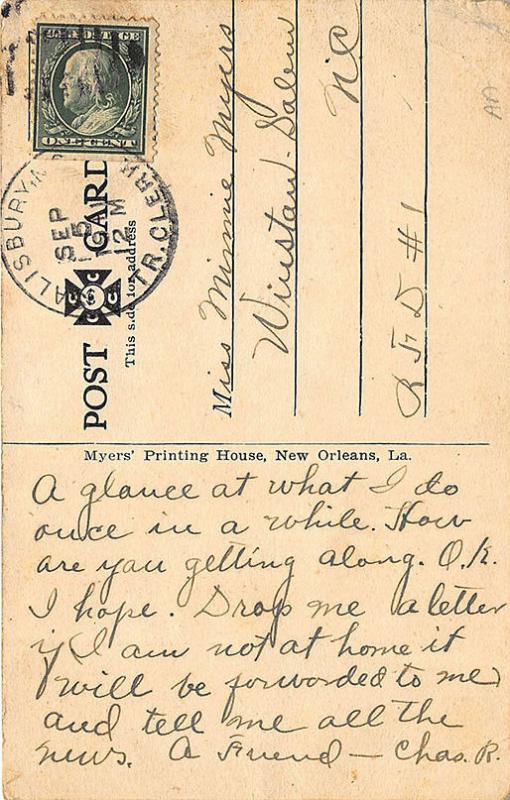 U.S. POSTAGE
ONE CENT
SEP
5
12 M
TR. CLERK
POST CARD
This side for address
Miss Minnie Myers
Winston-Salem
N.C
R F D #1
Myers' Printing House, New Orleans, La.
A glance at what I do
once in a while. How
are you getting along. O.K.
I hope. Drop me a letter
if I am not at home it
will be forworded to me
and tell me all the
news. A Friend — Chas. R.